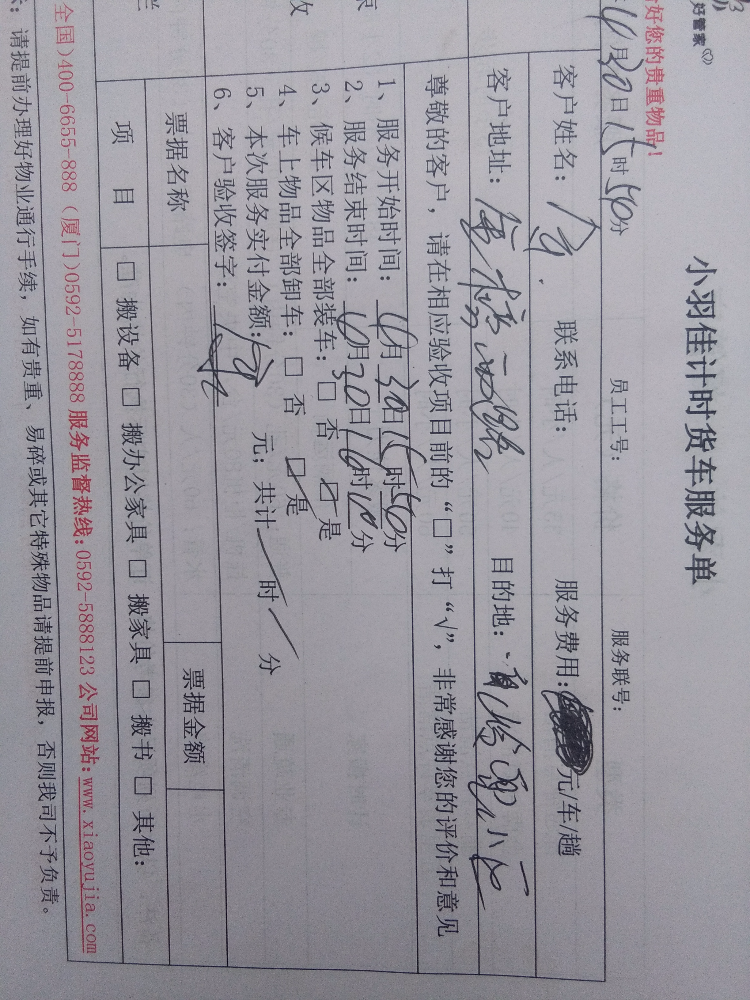 好管家
好您的贵重物品！
小羽佳计时货车服务单
4月30日15时50分 员工工号： 服务联号：
客户姓名： 联系电话： 服务费用： 元/车/趟
客户地址： 目的地： 小区
尊敬的客户，请在相应验收项目前的“□”打“√”，非常感谢您的评价和意见
1、服务开始时间：4月30日15时50分
2、服务结束时间：4月30日16时10分
3、候车区物品全部装车：□ 否 ☑ 是
4、车上物品全部卸车：□ 否 ☑ 是
5、本次服务实付金额： 元；共计 / 时 / 分
6、客户验收签字：
票据名称 票据金额
项 目 □ 搬设备 □ 搬办公家具 □ 搬家具 □ 搬书 □ 其他：
全国)400-6655-888（厦门)0592-5178888 服务监督热线：0592-5888123 公司网站：www.xiaoyujia.com
：请提前办理好物业通行手续，如有贵重、易碎或其它特殊物品请提前申报，否则我司不予负责。